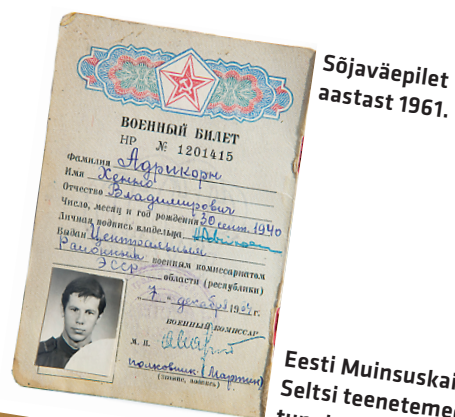 Sõjaväepilet
aastast 1961.
ВОЕННЫЙ БИЛЕТ
НР № 1201415
Фамилия Адрикорн
Имя Хенно
Отчество Владимирович
Число, месяц и год рождения 30 сент. 1940
Личная подпись владельца
Выдан Центральным
Районным военным комиссариатом
ЭССР области (республики)
7 декабря 1961 г.
ВОЕННЫЙ КОМИССАР
М. П.
полковник (Мартин)
(звание, подпись)
Eesti Muinsuskai
Seltsi teenetemer